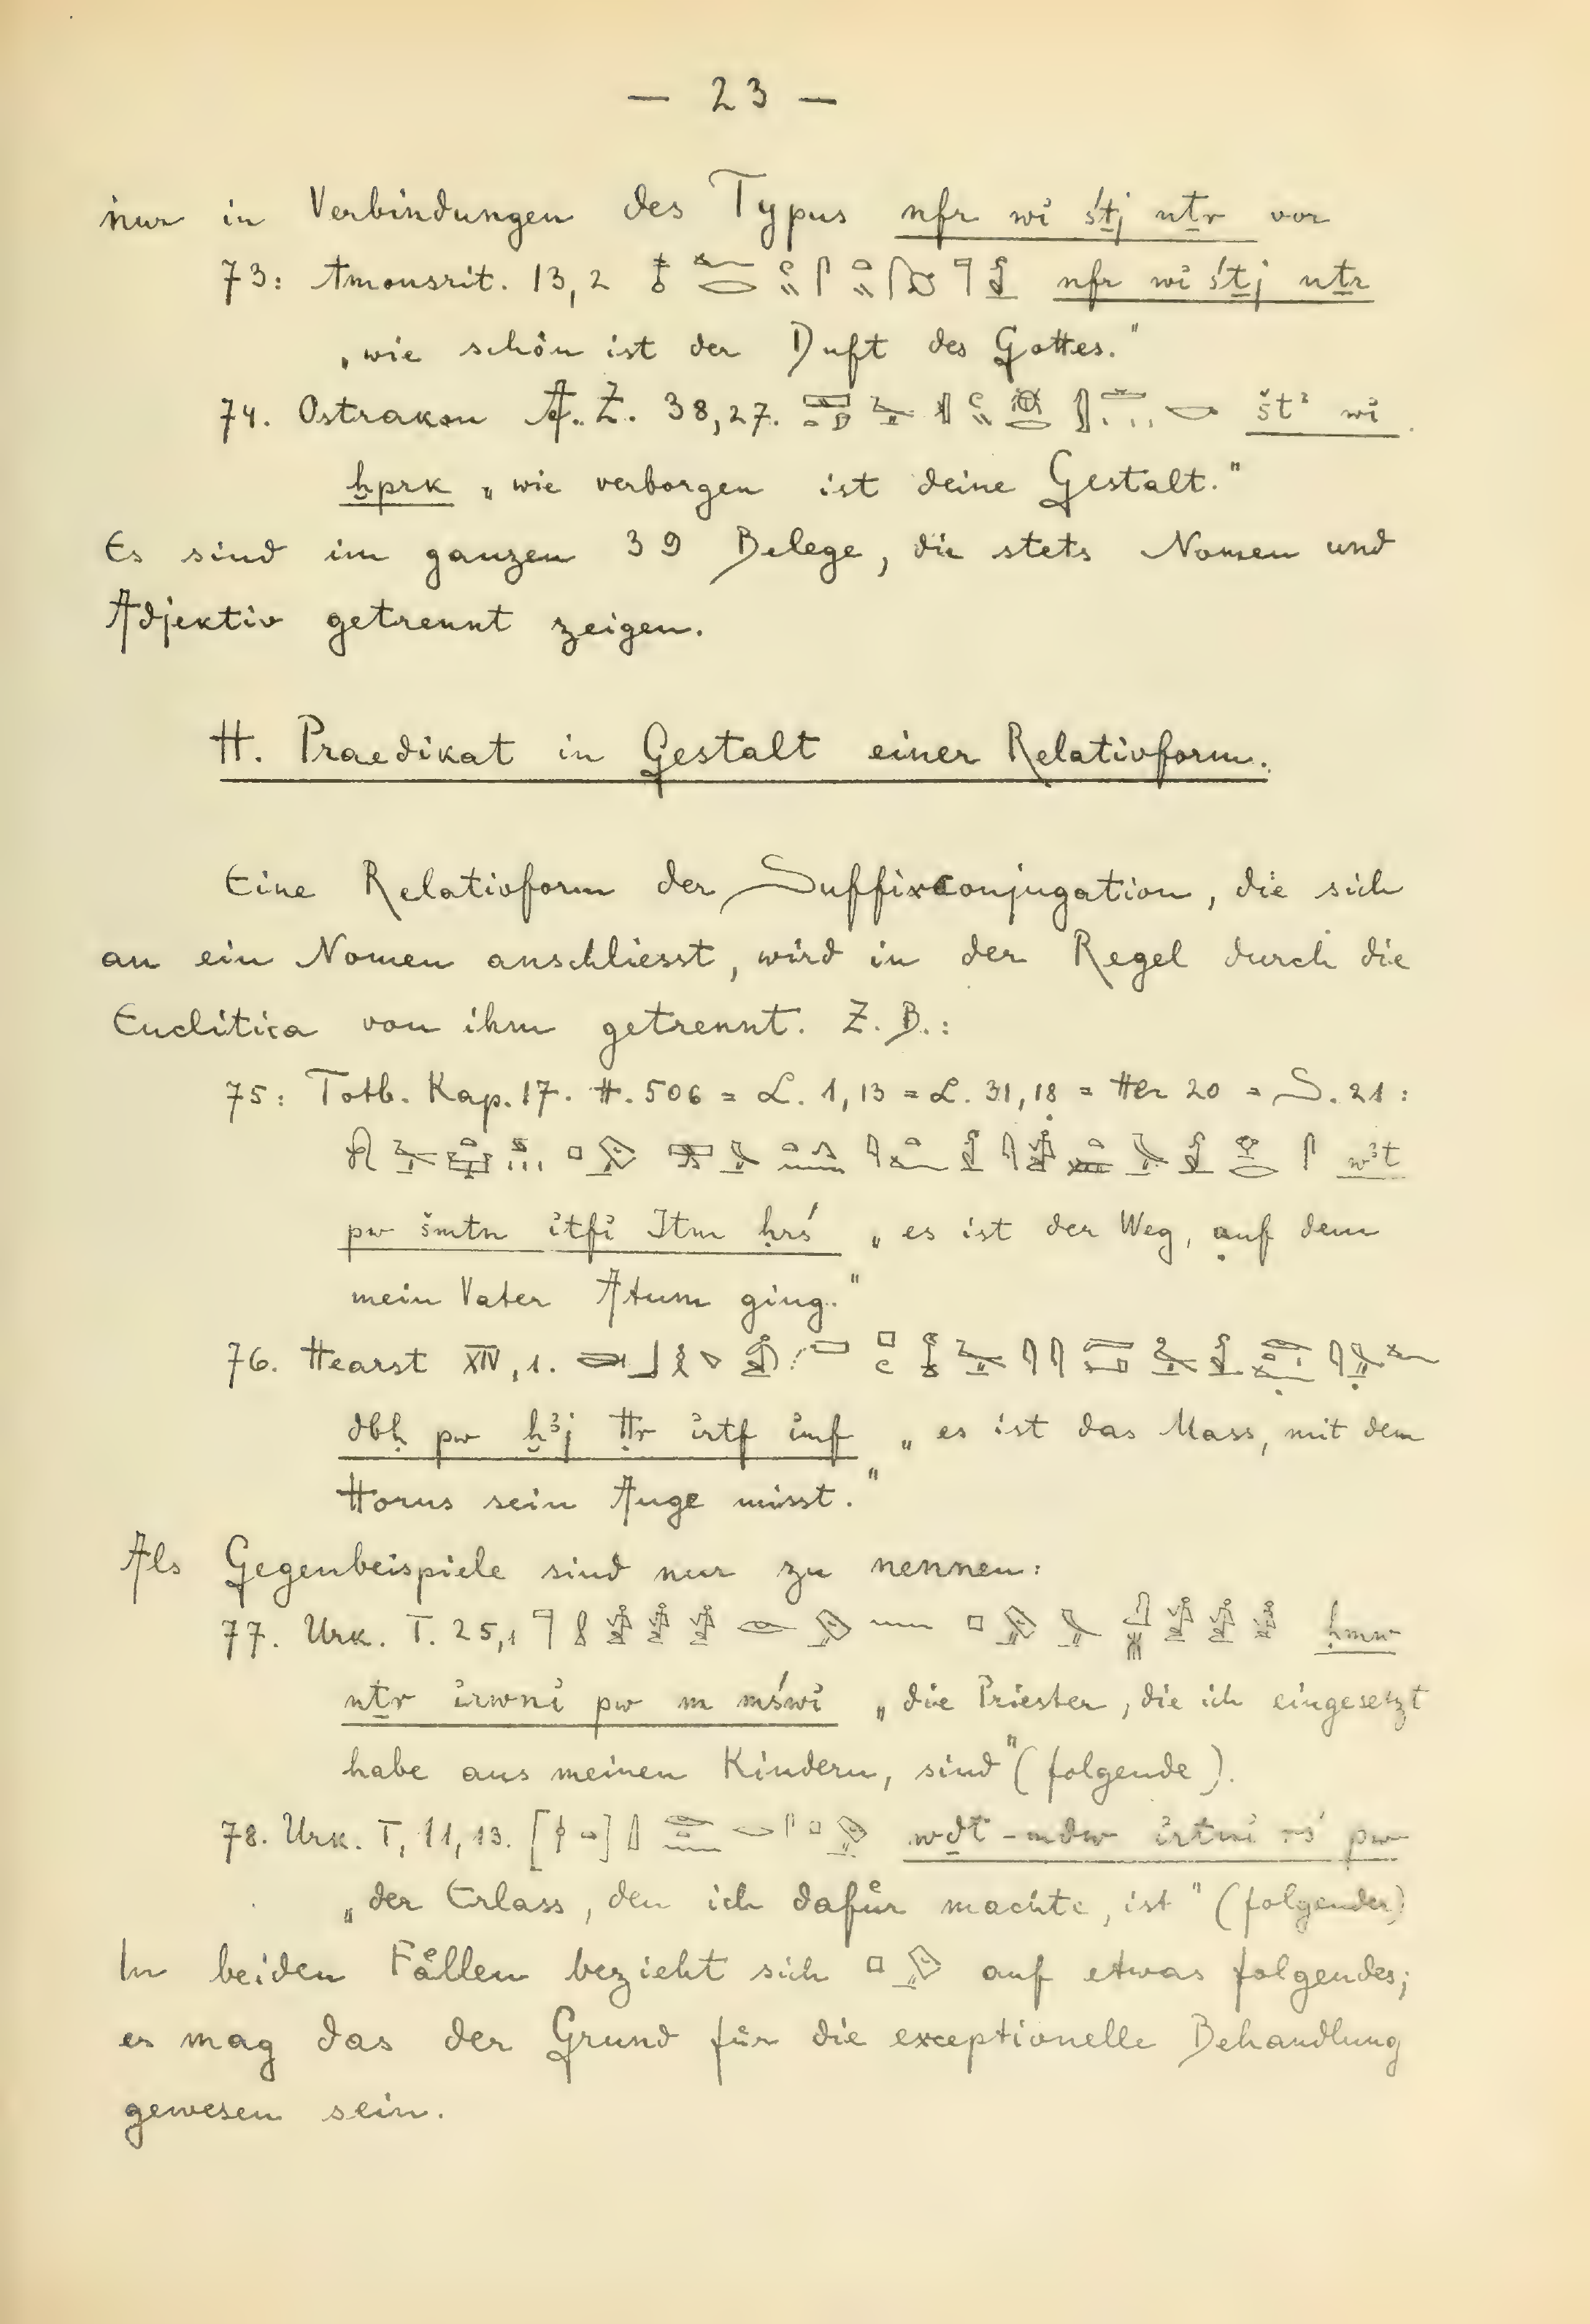 — 23 —
nur in Verbindungen des Typus nfr wi śṯj nṯr vor
73: Amonsrit. 13,2 nfr wi śṯj nṯr
„wie schön ist der Duft des Gottes."
74. Ostrakon Ä. Z. 38,27. št3 wi
ḫprk „wie verborgen ist deine Gestalt."
Es sind im ganzen 39 Belege, die stets Nomen und
Adjektiv getrennt zeigen.
H. Praedikat in Gestalt einer Relativform.
Eine Relativform der Suffixconjugation, die sich
an ein Nomen anschliesst, wird in der Regel durch die
Enclitica von ihm getrennt. Z. B.:
75: Totb. Kap. 17. H. 506 = L. 1,13 = L. 31,18 = Her 20 = S. 21:
w3t
pw šmtn itfi Itm ḥrś „es ist der Weg, auf dem
mein Vater Atum ging."
76. Hearst XIV, 1.
dbḥ pw ḫ3j Ḥr irtf imf „es ist das Mass, mit dem
Horus sein Auge misst."
Als Gegenbeispiele sind nur zu nennen:
77. Urk. T. 25,1 ḥmw
nṯr irwni pw m mświ „die Priester, die ich eingesetzt
habe aus meinen Kindern, sind" (folgende).
78. Urk. T, 11, 13. wḏt-mdw irtni rś pw
„der Erlass, den ich dafür machte, ist" (folgender)
In beiden Fällen bezieht sich auf etwas folgendes;
es mag das der Grund für die exceptionelle Behandlung
gewesen sein.